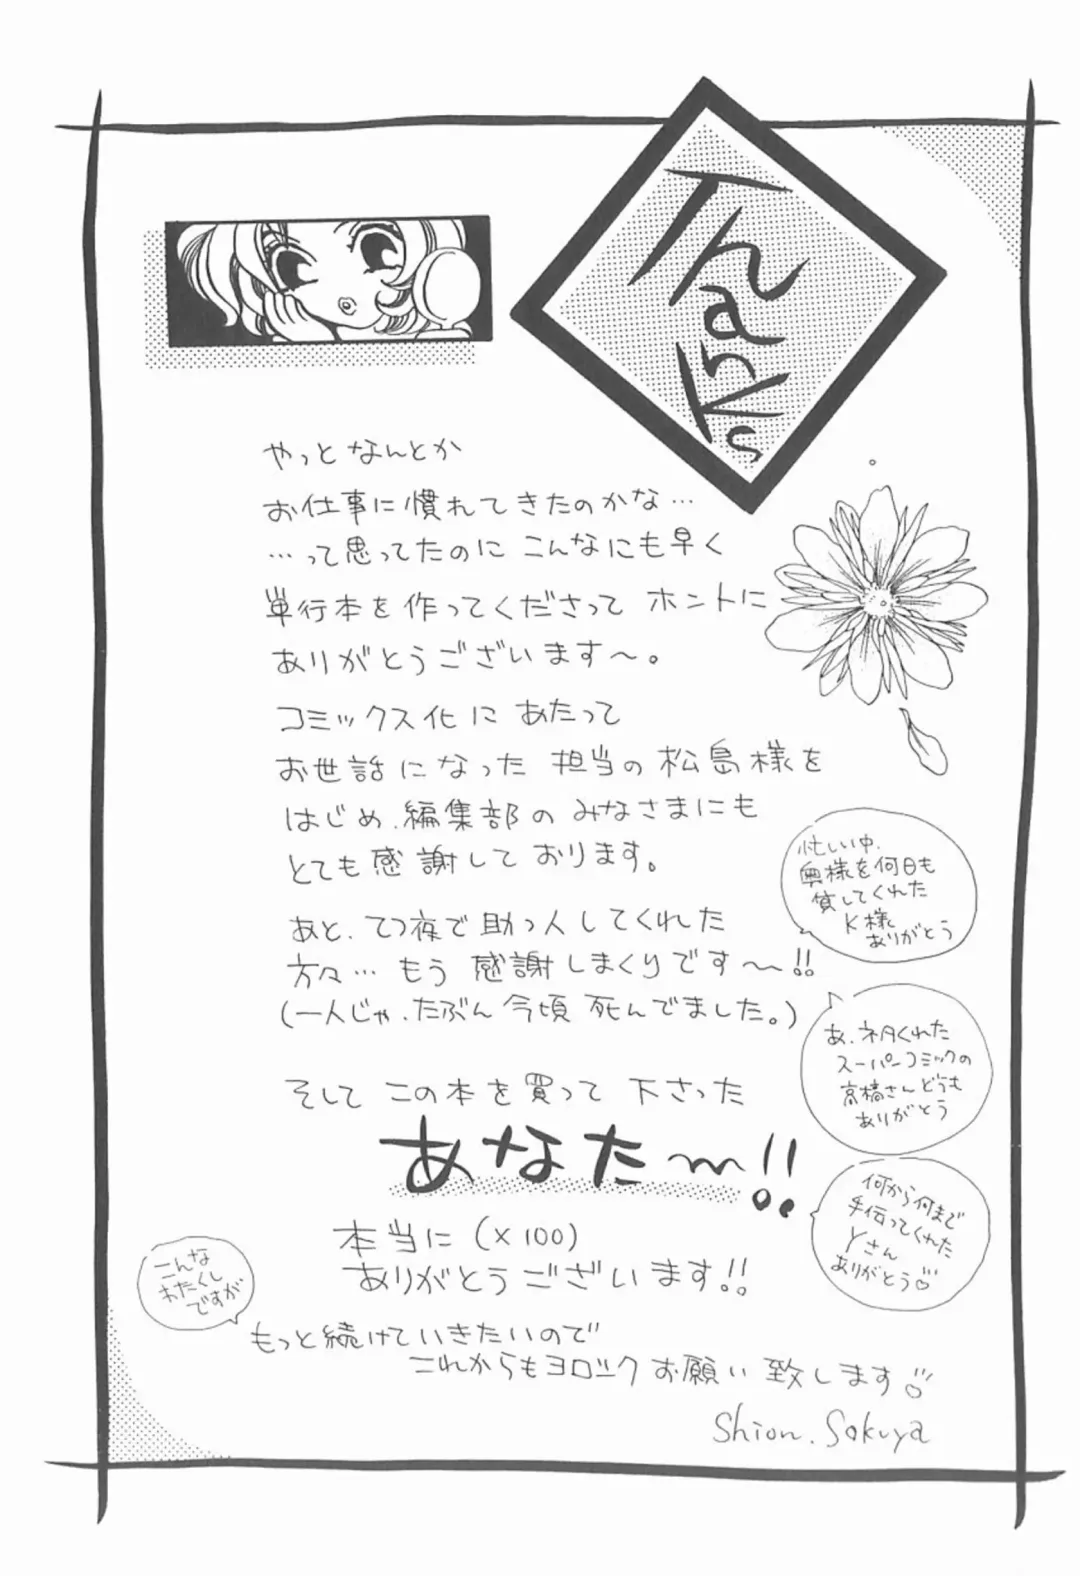 Thanks
やっとなんとか
お仕事に慣れてきたのかな…
…って思ってたのに こんなにも早く
単行本を作ってくださって ホントに
ありがとうございます〜。
コミックス化に あたって
お世話になった 担当の松島様を
はじめ、編集部の みなさまにも
とても感謝して おります。
あと、てつ夜で助っ人してくれた
方々… もう 感謝しまくりです〜!!
(一人じゃ、たぶん今頃 死んでました。)
そして この本を買って 下さった
あなた〜!!
本当に (×100)
ありがとうございます!!
こんな
わたくし
ですが
もっと続けていきたいので
これからもヨロシク お願い 致します♡
Shion. Sakuya
忙しい中、
奥様を何日も
貸してくれた
K様
ありがとう
あ、ネタくれた
スーパーコミックの
高橋さんどうも
ありがとう
何から何まで
手伝ってくれた
Yさん
ありがとう♡